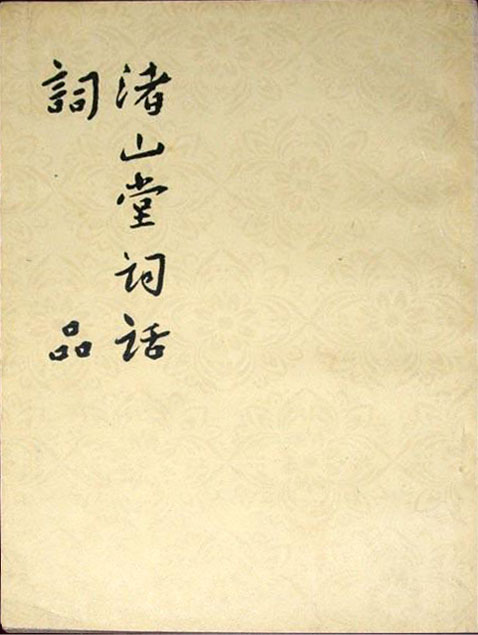 渚山堂词话
詞品